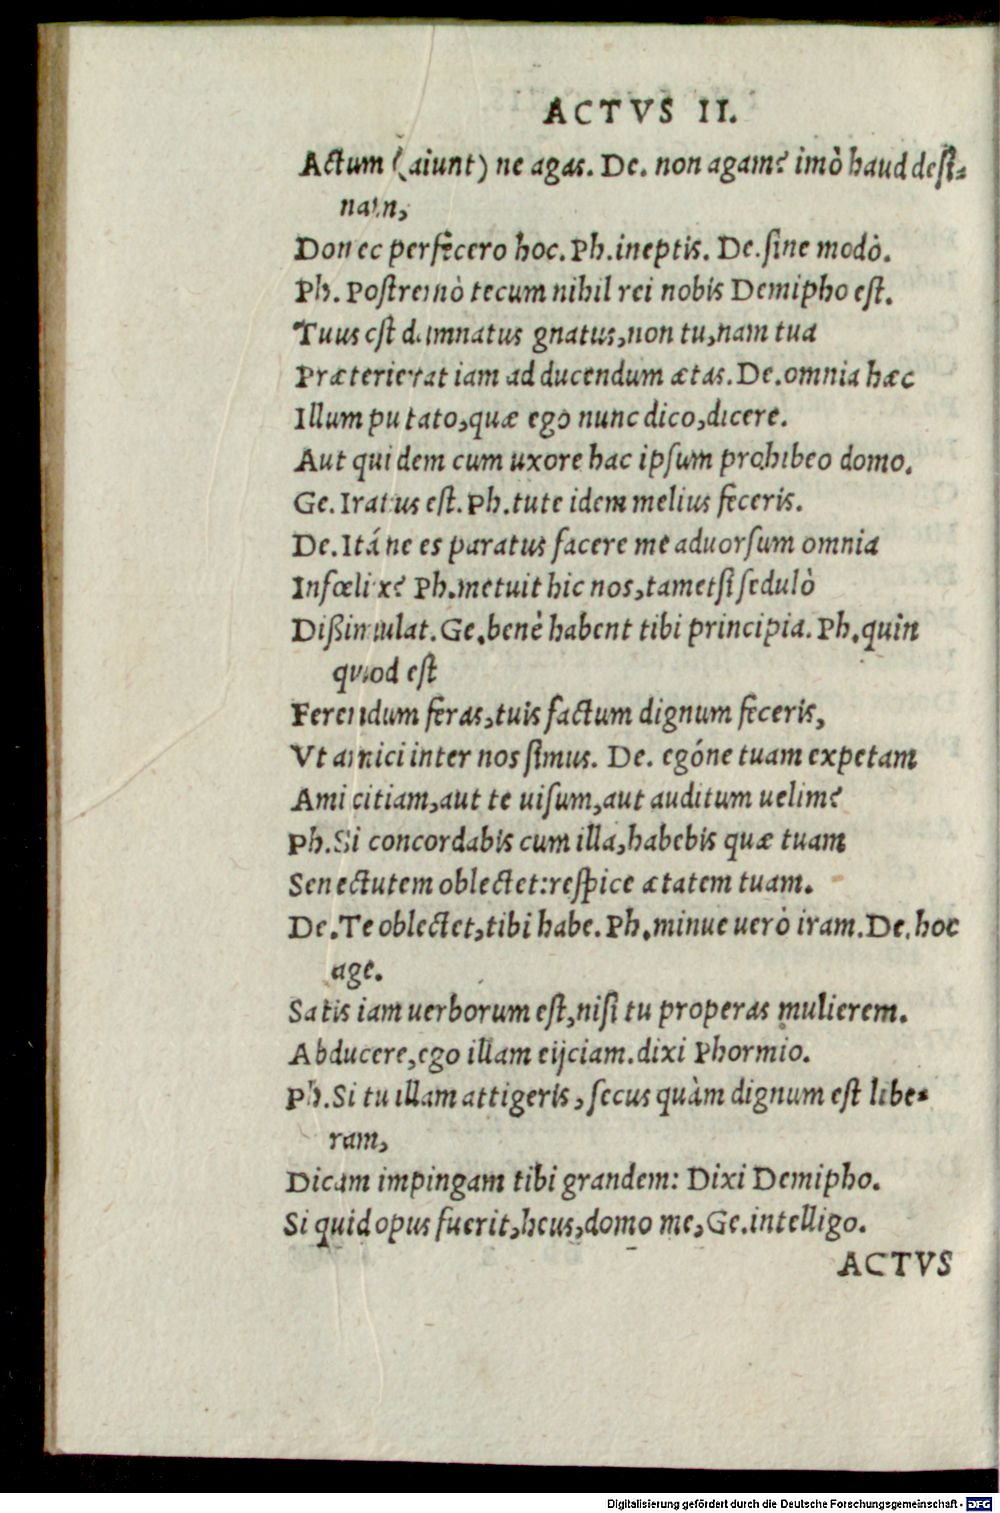 ACTVS II.
Actum (aiunt) ne agas. De. non agam? imò haud desi-
nam,
Donec perfecero hoc. Ph. ineptis. De. sine modò.
Ph. Postremò tecum nihil rei nobis Demipho est.
Tuus est damnatus gnatus, non tu, nam tua
Præterierat iam ad ducendum ætas. De. omnia hæc
Illum putato, quæ ego nunc dico, dicere.
Aut quidem cum uxore hac ipsum prohibeo domo.
Ge. Iratus est. Ph. tute idem melius feceris.
De. Itáne es paratus facere me aduorsum omnia
Infœlix? Ph. metuit hic nos, tametsi sedulò
Dißimulat. Ge. benè habent tibi principia. Ph. quin
quod est
Ferendum feras, tuis factum dignum feceris,
Vt amici inter nos simus. De. egóne tuam expetam
Amicitiam, aut te uisum, aut auditum uelim?
Ph. Si concordabis cum illa, habebis quæ tuam
Senectutem oblectet: respice ætatem tuam.
De. Te oblectet, tibi habe. Ph. minue uerò iram. De. hoc
age.
Satis iam uerborum est, nisi tu properas mulierem.
Abducere, ego illam eijciam. dixi Phormio.
Ph. Si tu illam attigeris, secus quàm dignum est libe-
ram,
Dicam impingam tibi grandem: Dixi Demipho.
Si quid opus fuerit, heus, domo me, Ge. intelligo.
ACTVS
Digitalisierung gefördert durch die Deutsche Forschungsgemeinschaft - DFG